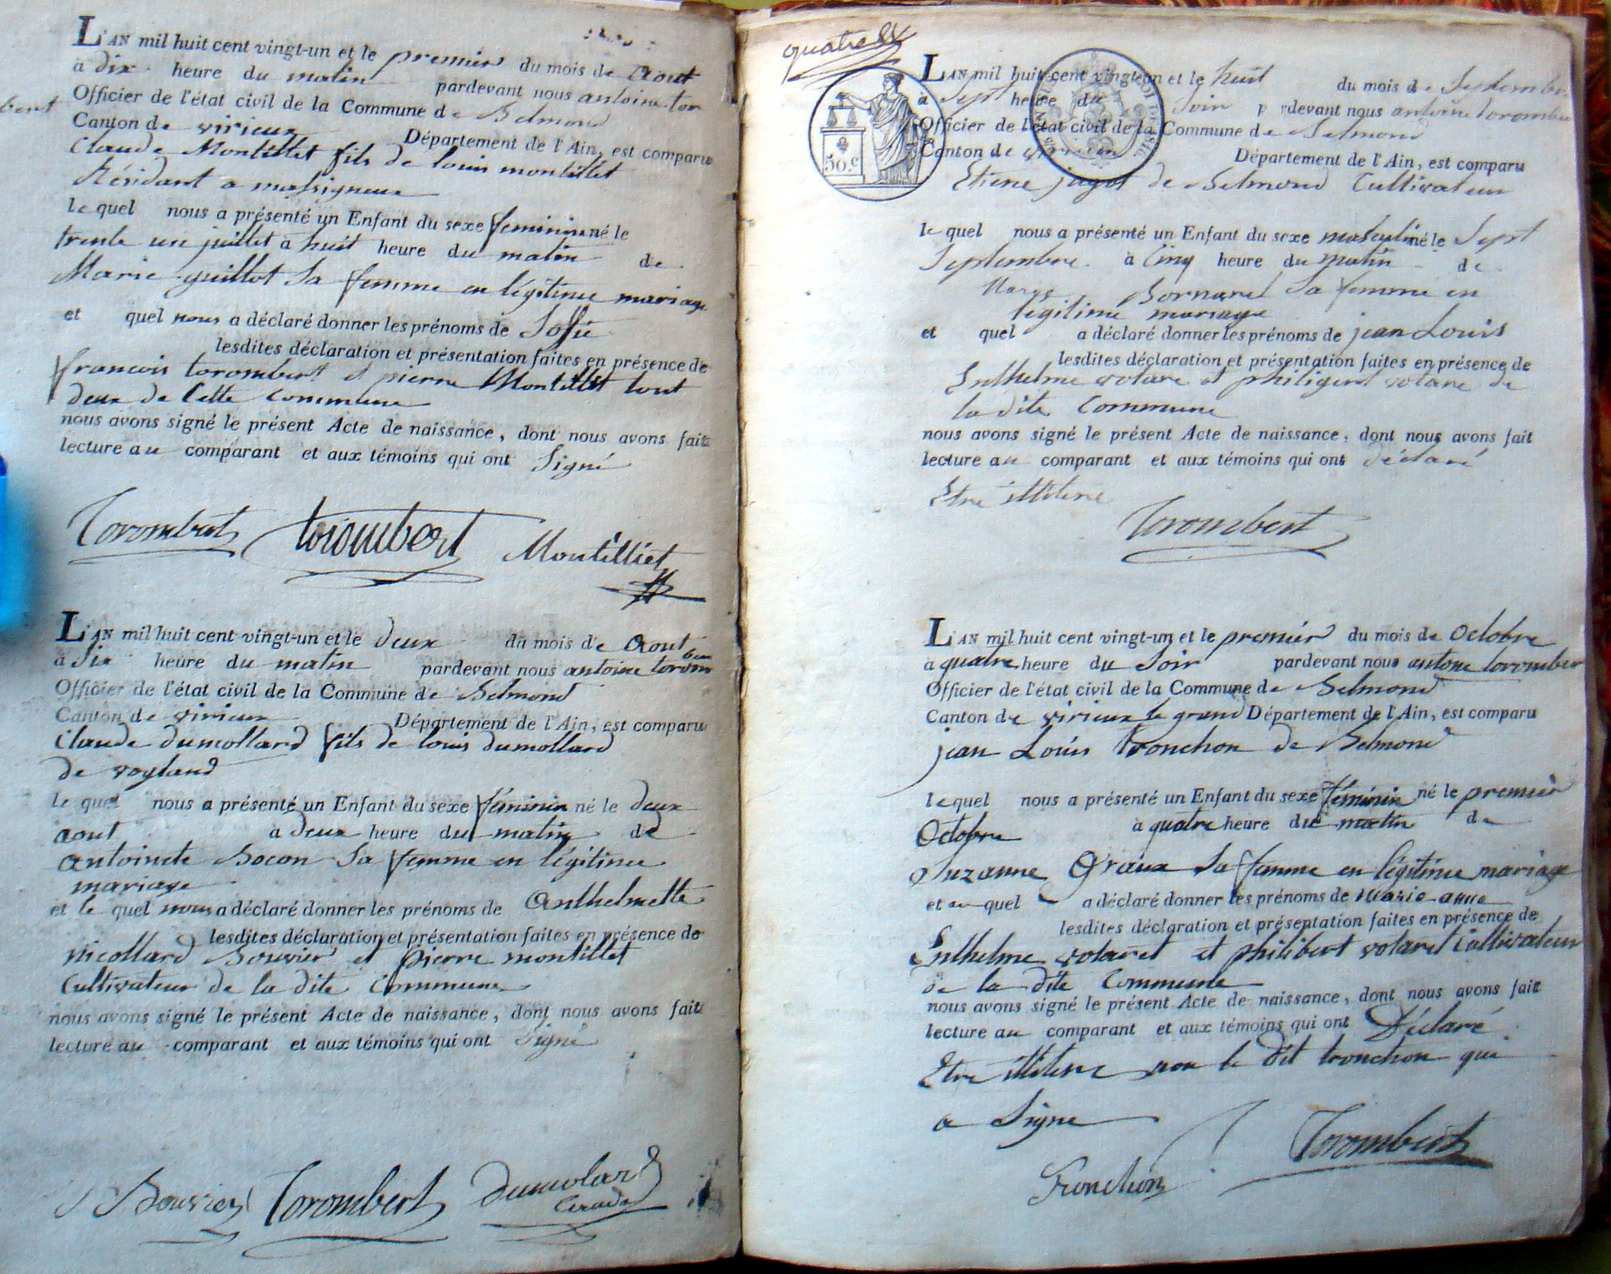 L'AN mil huit cent vingt-un et le premier du mois de Aout
à dix heure du matin pardevant nous antoine tor
bert
Officier de l'état civil de la Commune de Belmond
Canton de virieux Département de l'Ain, est comparu
Claude Montillet fils de louis montillet
Résidant a massigneux
le quel nous a présenté un Enfant du sexe feminin né le
trente un juillet à huit heure du matin de
Marie guillot Sa femme en légitime mariage
et quel nous a déclaré donner les prénoms de Sofie
lesdites déclaration et présentation faites en présence de
francois torombert et pierre Montillet tout
deux de Cette Commune
nous avons signé le présent Acte de naissance, dont nous avons fait
lecture au comparant et aux témoins qui ont Signé
Torombert torombert Montilliet
L'AN mil huit cent vingt-un et le deux du mois de Aout
à Six heure du matin pardevant nous antoine torom
ber
Officier de l'état civil de la Commune de Belmond
Canton de virieux Département de l'Ain, est comparu
Claude dumollard fils de louis dumollard
de voyland
le quel nous a présenté un Enfant du sexe féminin né le deux
aout à deux heure du matin de
antoinete Bocon Sa femme en légitime
mariage
et le quel nous a déclaré donner les prénoms de Anthelmette
lesdites déclaration et présentation faites en présence de
nicollard Bouvier et pierre montillet
Cultivateur de la dite Commune
nous avons signé le présent Acte de naissance, dont nous avons fait
lecture au comparant et aux témoins qui ont Signé
Bouvier Torombert Dumolard
quatre
50 c
L'AN mil huit cent vingt-un et le huit du mois de Septembre
à Sept heure du Soir pardevant nous antoine torombert
Officier de l'état civil de la Commune de Belmond
Canton de Département de l'Ain, est comparu
Etiene jugot de Belmond Cultivateur
le quel nous a présenté un Enfant du sexe masculin né le Sept
Septembre à Cinq heure du matin de
Bornard Sa femme en
légitime mariage
et quel a déclaré donner les prénoms de jean Louis
lesdites déclaration et présentation faites en présence de
Enthelme volare et philigert volare de
la dite Commune
nous avons signé le présent Acte de naissance, dont nous avons fait
lecture au comparant et aux témoins qui ont déclaré
Etre illitere
Torombert
L'AN mil huit cent vingt-un et le premier du mois de Octobre
à quatre heure du Soir pardevant nous antoine toromber
Officier de l'état civil de la Commune de Belmond
Canton de virieux le grand Département de l'Ain, est comparu
jean Louis tronchon de Belmond
le quel nous a présenté un Enfant du sexe féminin né le premier
Octobre à quatre heure du matin de
Suzanne Graux Sa femme en légitime mariage
et au quel a déclaré donner les prénoms de Marie anne
lesdites déclaration et présentation faites en présence de
Enthelme volaret et philibert volaret Cultivateur
de la dite Commune
nous avons signé le présent Acte de naissance, dont nous avons fait
lecture au comparant et aux témoins qui ont Déclaré
Etre illitere non le dit tronchon qui
a Signe
Tronchon Torombert